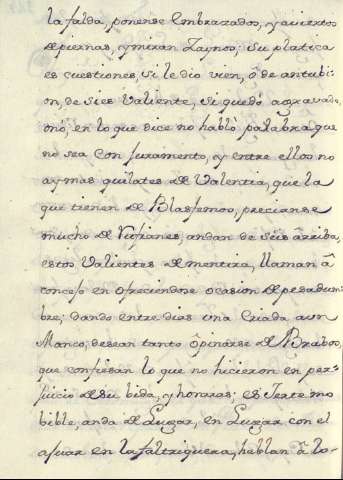 la falda, ponense Embrazados, y aviertos
de piernas, y miran Zaynos; su platica
es cuestiones, si le dio vien, ó de antubi-
on, de si es Valiente, si quedó agravado,
ó nó, en lo que dice no habló palabra que
no sea con Juramento, y entre ellos no
ay mas quilates de Valentia, que la
que tienen de Blasfemos, precianse
mucho de Rufianes, andan de seis arriba,
estos Valientes de mentira, llaman â
conceso en ofreciendose ocasion de pesadum-
bre; dando entre dias una Criada a un
Manco, desean tanto ôpinarse de Brabos,
que confiesan lo que no hicieron en per-
juicio de su bida, y honrras; es Jente mo
bible, anda de Lugar, en Lugar con el
ajuar en la faltriquera, hablan â lo-